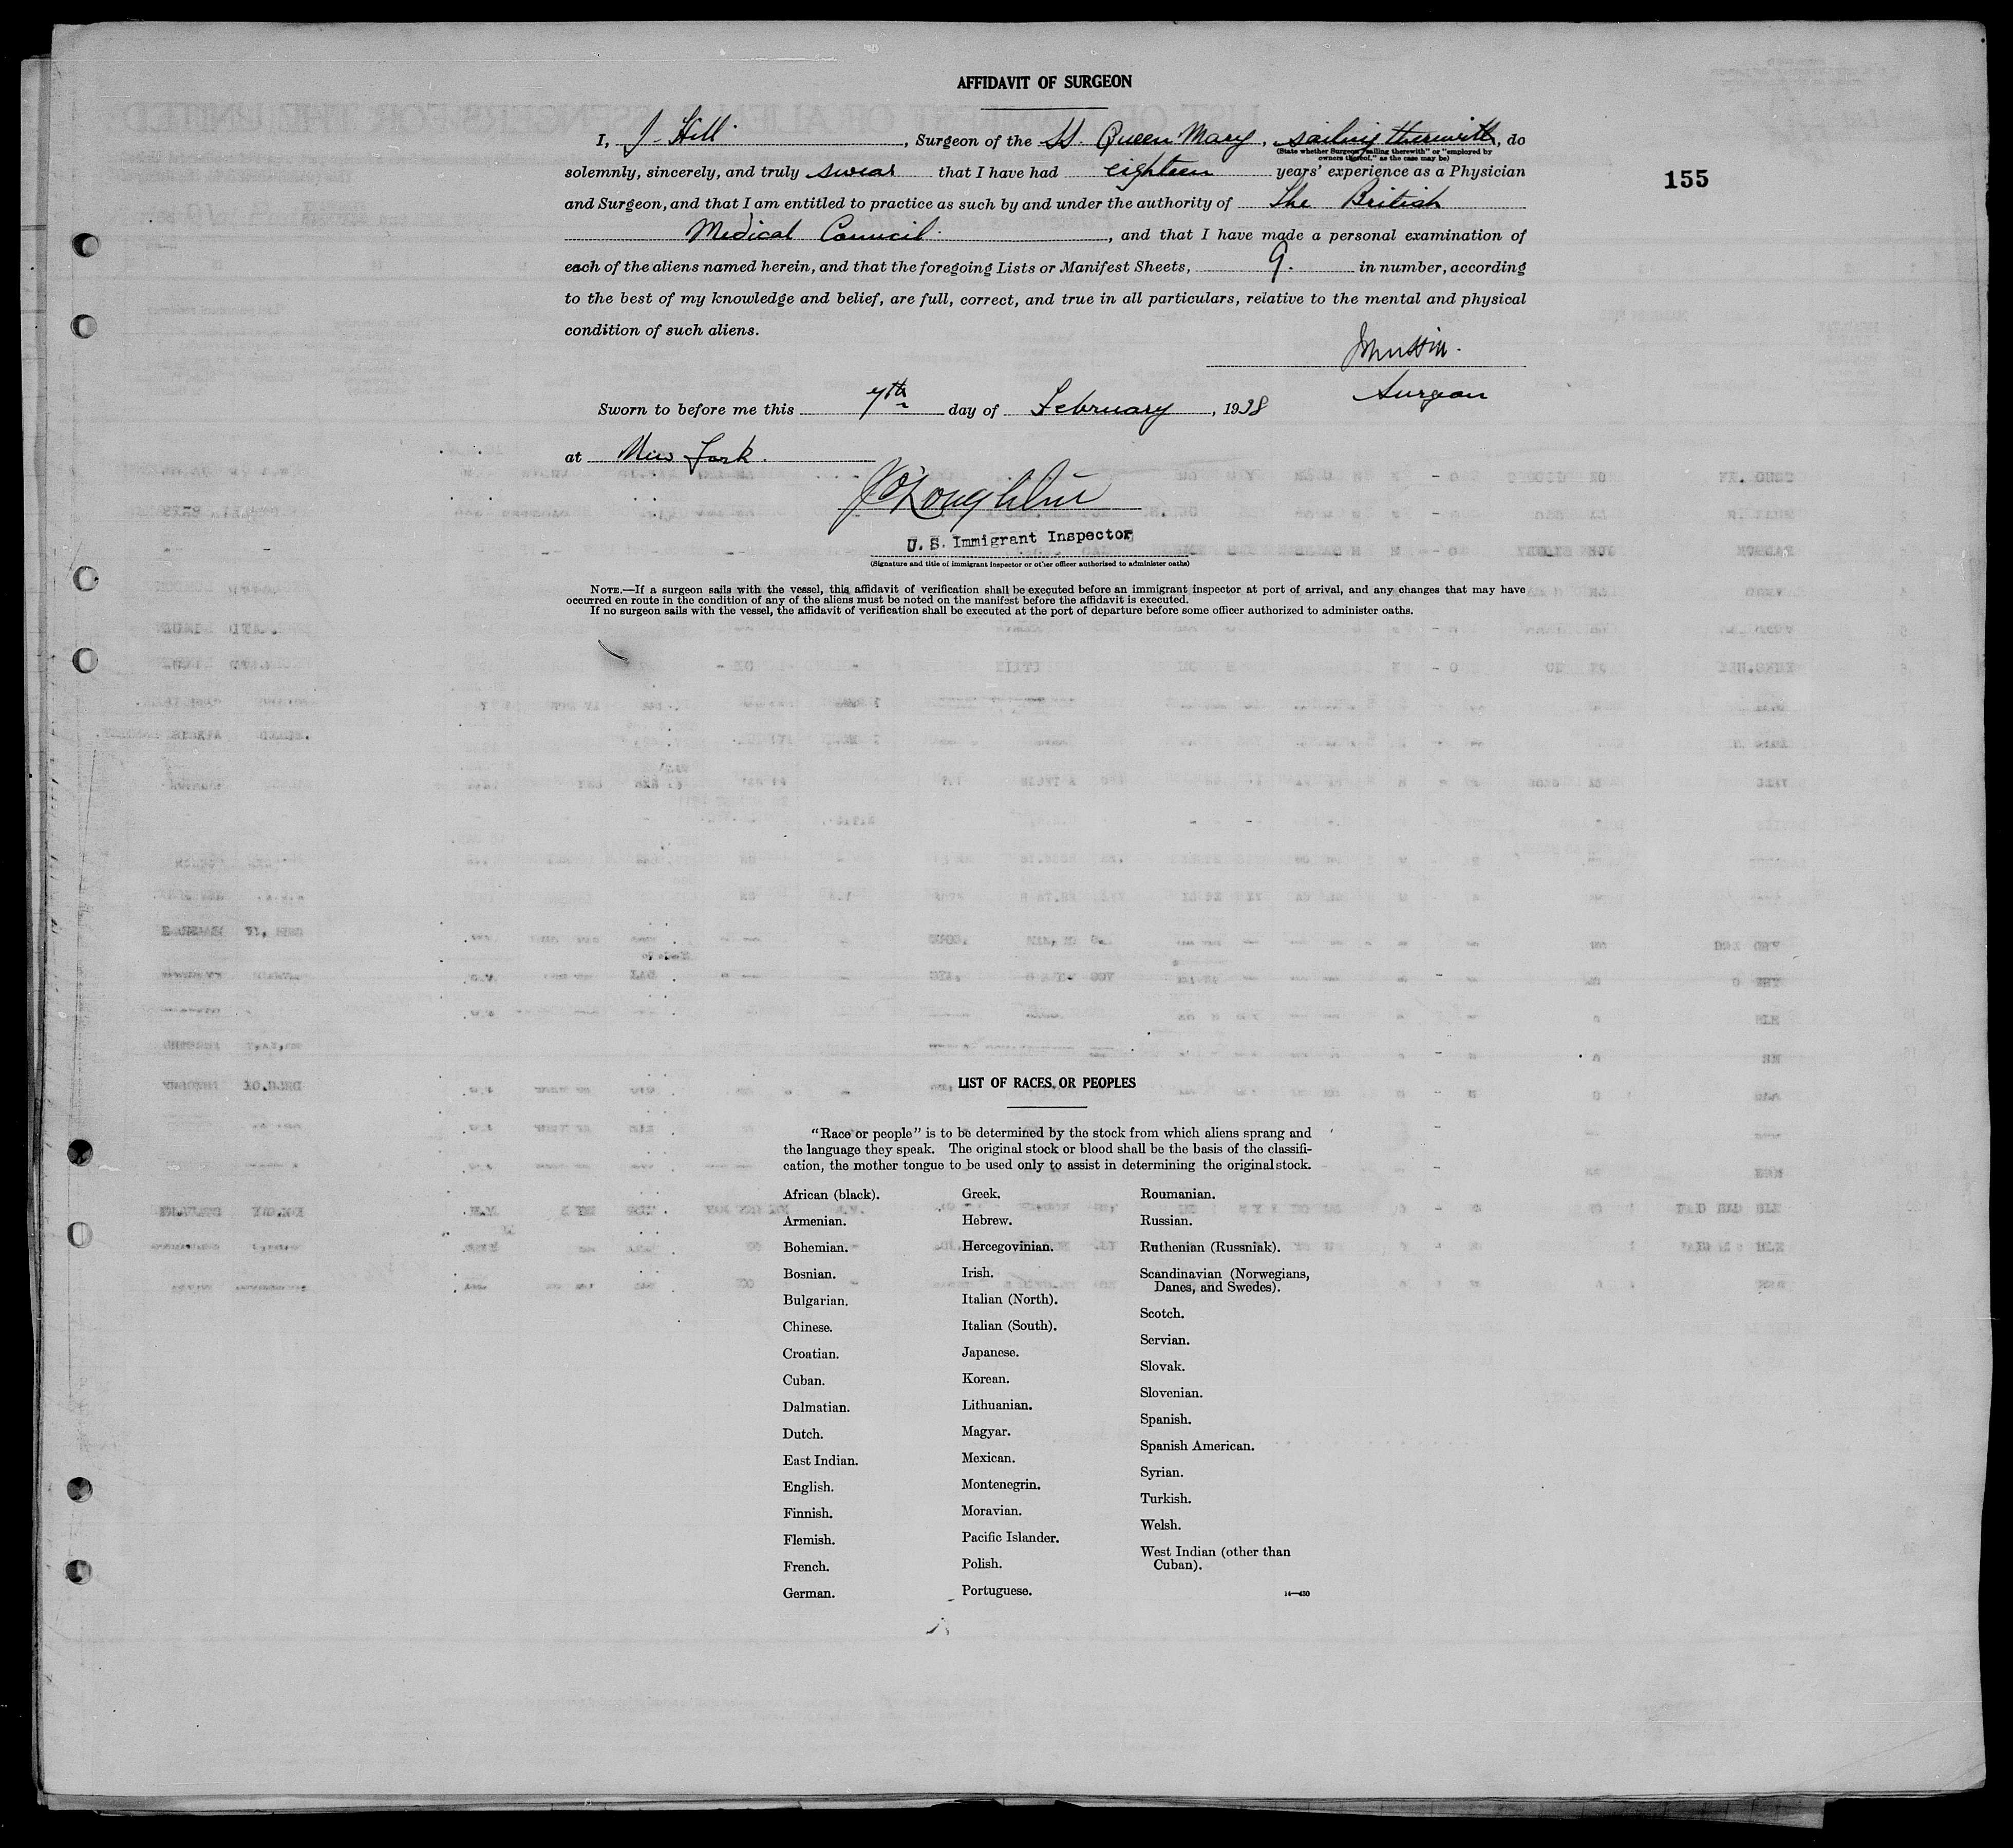 AFFIDAVIT OF SURGEON
I, J. Hill, Surgeon of the SS. Queen Mary, sailing therewith, do
(State whether Surgeon "sailing therewith" or "employed by
owners thereof," as the case may be)
155
solemnly, sincerely, and truly swear that I have had eighteen years' experience as a Physician
and Surgeon, and that I am entitled to practice as such by and under the authority of The British
Medical Council., and that I have made a personal examination of
each of the aliens named herein, and that the foregoing Lists or Manifest Sheets, 9. in number, according
to the best of my knowledge and belief, are full, correct, and true in all particulars, relative to the mental and physical
condition of such aliens.
John Hill.
Surgeon
Sworn to before me this 7th day of February, 1938
at New York.
J O'Loughlin
U. S. Immigrant Inspector
(Signature and title of immigrant inspector or other officer authorized to administer oaths)
NOTE.—If a surgeon sails with the vessel, this affidavit of verification shall be executed before an immigrant inspector at port of arrival, and any changes that may have
occurred en route in the condition of any of the aliens must be noted on the manifest before the affidavit is executed.
If no surgeon sails with the vessel, the affidavit of verification shall be executed at the port of departure before some officer authorized to administer oaths.
LIST OF RACES OR PEOPLES
"Race or people" is to be determined by the stock from which aliens sprang and
the language they speak. The original stock or blood shall be the basis of the classifi-
cation, the mother tongue to be used only to assist in determining the original stock.
African (black).
Armenian.
Bohemian.
Bosnian.
Bulgarian.
Chinese.
Croatian.
Cuban.
Dalmatian.
Dutch.
East Indian.
English.
Finnish.
Flemish.
French.
German.
Greek.
Hebrew.
Hercegovinian.
Irish.
Italian (North).
Italian (South).
Japanese.
Korean.
Lithuanian.
Magyar.
Mexican.
Montenegrin.
Moravian.
Pacific Islander.
Polish.
Portuguese.
Roumanian.
Russian.
Ruthenian (Russniak).
Scandinavian (Norwegians,
Danes, and Swedes).
Scotch.
Servian.
Slovak.
Slovenian.
Spanish.
Spanish American.
Syrian.
Turkish.
Welsh.
West Indian (other than
Cuban).
14—430